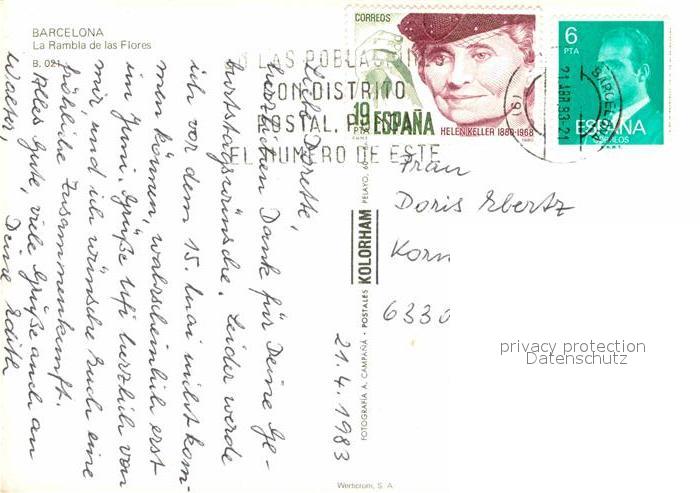 BARCELONA
La Rambla de las Flores
B. 021
Liebe Dorette,
herzlichen Dank für Deine Ge-
burtstagswünsche. Leider werde
ich vor dem 15. Mai nicht kom-
men können, wahrscheinlich erst
im Juni. Grüße Ufi herzlich von
mir und ich wünsche Euch eine
fröhliche Zusammenkunft.
Alles Gute, viele Grüße auch an
Walter,
Deine Edith
21.4.1983
FOTOGRAFIA A. CAMPAÑÁ · POSTALES KOLORHAM PELAYO, 60
Werticrom, S. A.
LAS POBLACION
CON DISTRITO
POSTAL, P
EL NUMERO DE ESTE
CORREOS
19 PTA ESPAÑA
HELEN KELLER 1880-1968
6 PTA
ESPAÑA
CORREOS
21 ABR 83-21
BARCELONA
(9)
Frau
Doris Ebertz
Korn
6330
privacy protection
Datenschutz